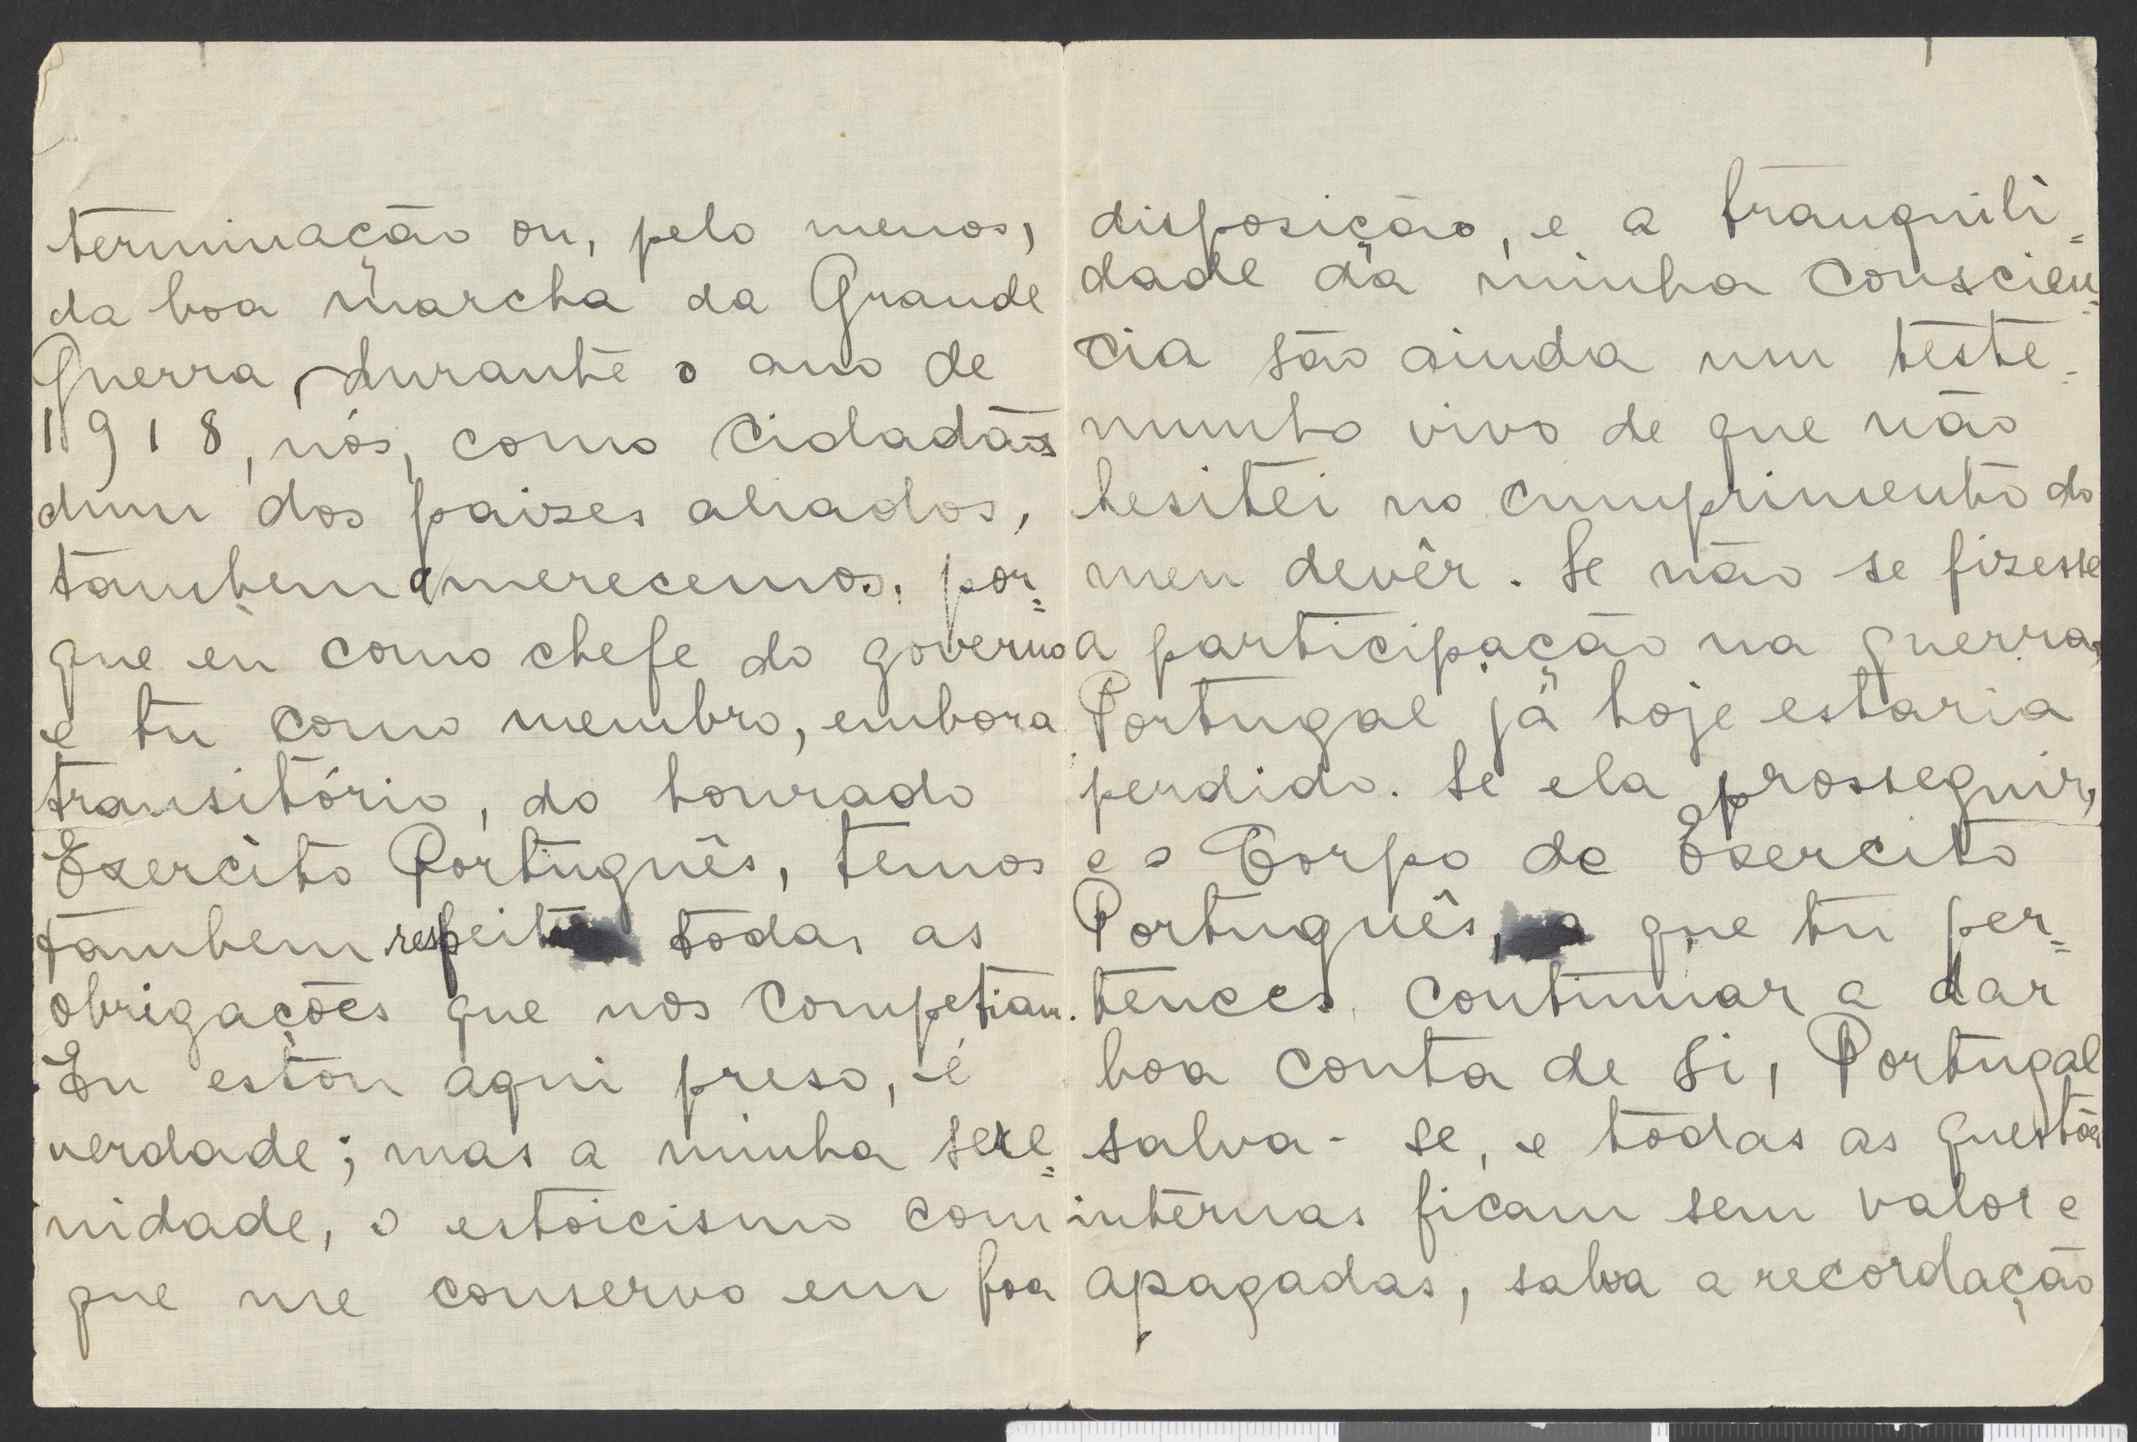 terminação ou, pelo menos,
da boa marcha da Grande
Guerra, durante o ano de
1918, nós, como cidadãos
dum dos paizes aliados,
tambem a merecemos, por=
que eu como chefe do governo
e tu como membro, embora
transitório, do honrado
Exercito Português, temos
tambem respeit todas as
obrigações que nos competiam.
Eu estou aqui preso, é
verdade; mas a minha sere=
nidade, o estoicismo com
que me conservo em boa
disposição, e a tranquili=
dade da minha conscien=
cia são ainda um teste=
munho vivo de que não
hesitei no cumprimento do
meu devêr. Se não se fizesse
a participação na guerra,
Portugal já hoje estaria
perdido. Se ela prosseguir,
e o Corpo de Exercito
Português, a que tu per=
tences, continuar a dar
boa conta de si, Portugal
salva-se, e todas as questões
internas ficam sem valor e
apagadas, salva a recordação